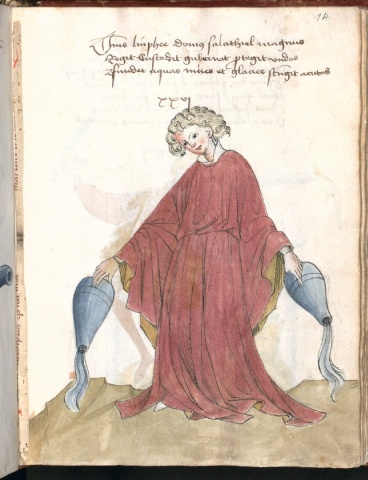 14
limphee domus salathiel magnus
Regit Custodit gubernat ptegit vndas
ffundet aquas niues et glacies stringit acutas
xxvi